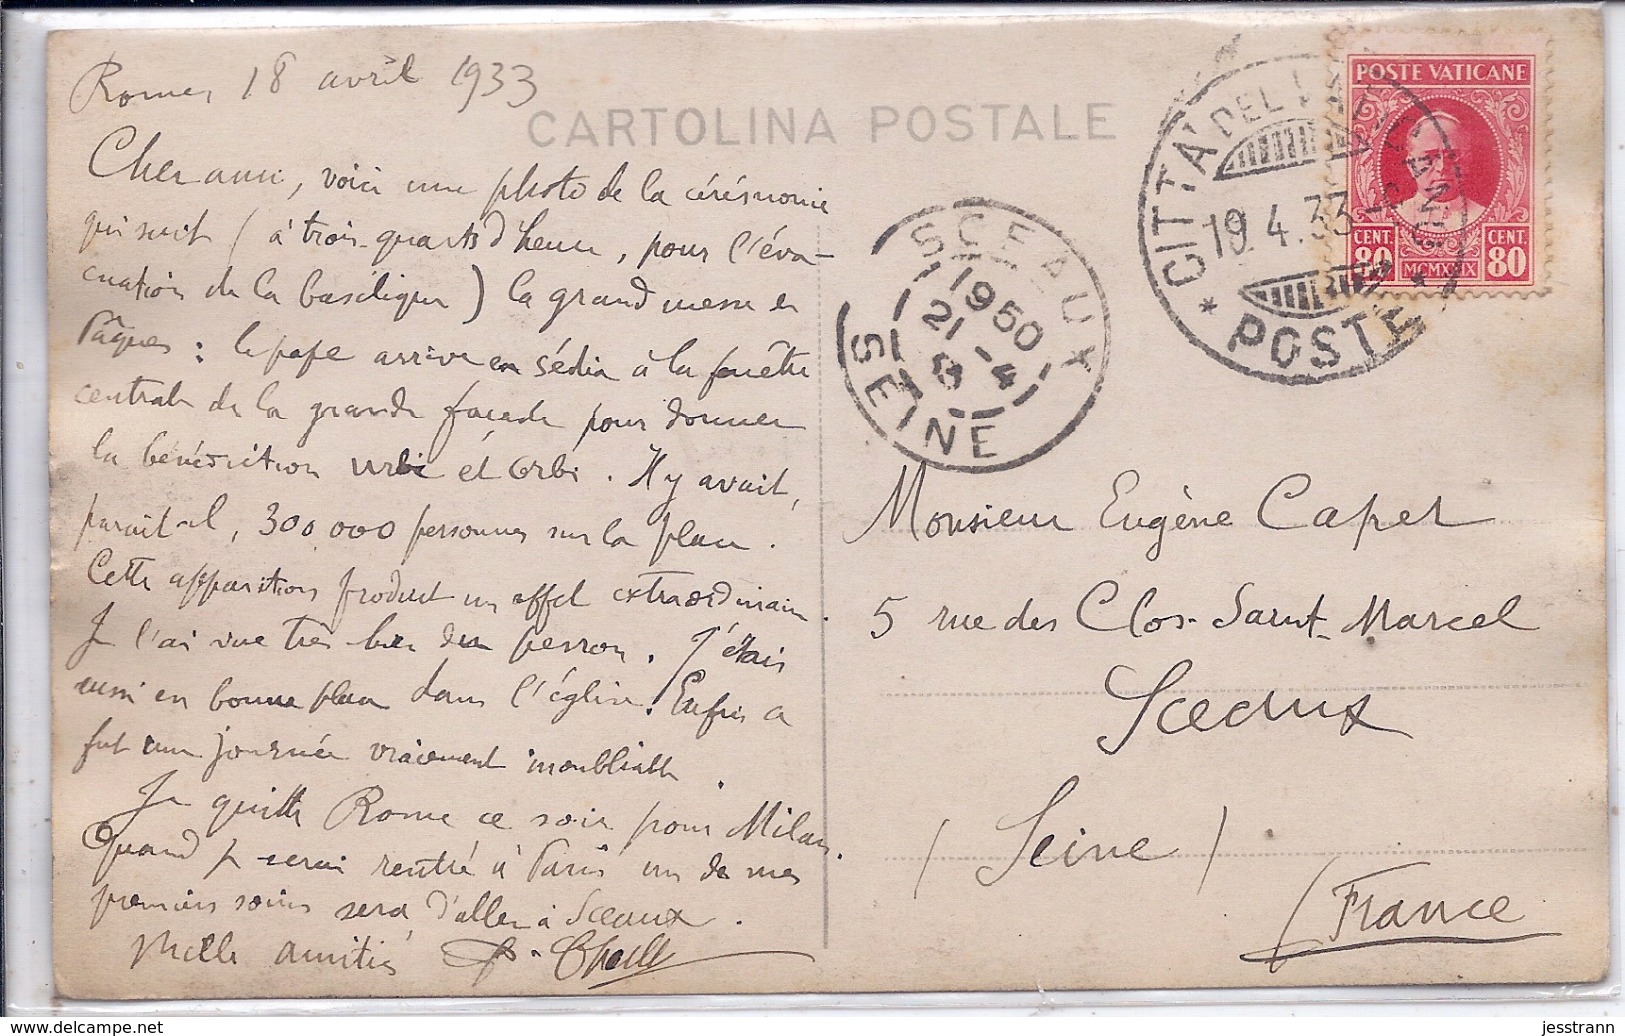 Rome, 18 avril 1933
CARTOLINA POSTALE
Cher ami, voici une photo de la cérémonie
qui suit (à trois-quarts d'heure, pour l'éva-
cuation de la basilique) la grand messe de
Pâques : le pape arrive en sédia à la fenêtre
centrale de la grande façade pour donner
la bénédiction urbi et orbi. Il y avait,
paraît-il, 300 000 personnes sur la place.
Cette apparition produit un effet extraordinaire.
Je l'ai vue très bien du perron. J'étais
aussi en bonne place dans l'église. Enfin ce
fut une journée vraiment inoubliable.
Je quitte Rome ce soir pour Milan.
Quand je serai rentré à Paris un de mes
premiers soins sera d'aller à Sceaux.
Mille amitiés
POSTE VATICANE
CENT. 80
MCMXXIX
CENT. 80
CITTA' DEL VATICANO
19.4.33
* POSTE *
SCEAUX
1950
21-4
SEINE
Monsieur Eugène Capet
5 rue des Clos-Saint-Marcel
Sceaux
(Seine)
(France
www.delcampe.net
jesstrann